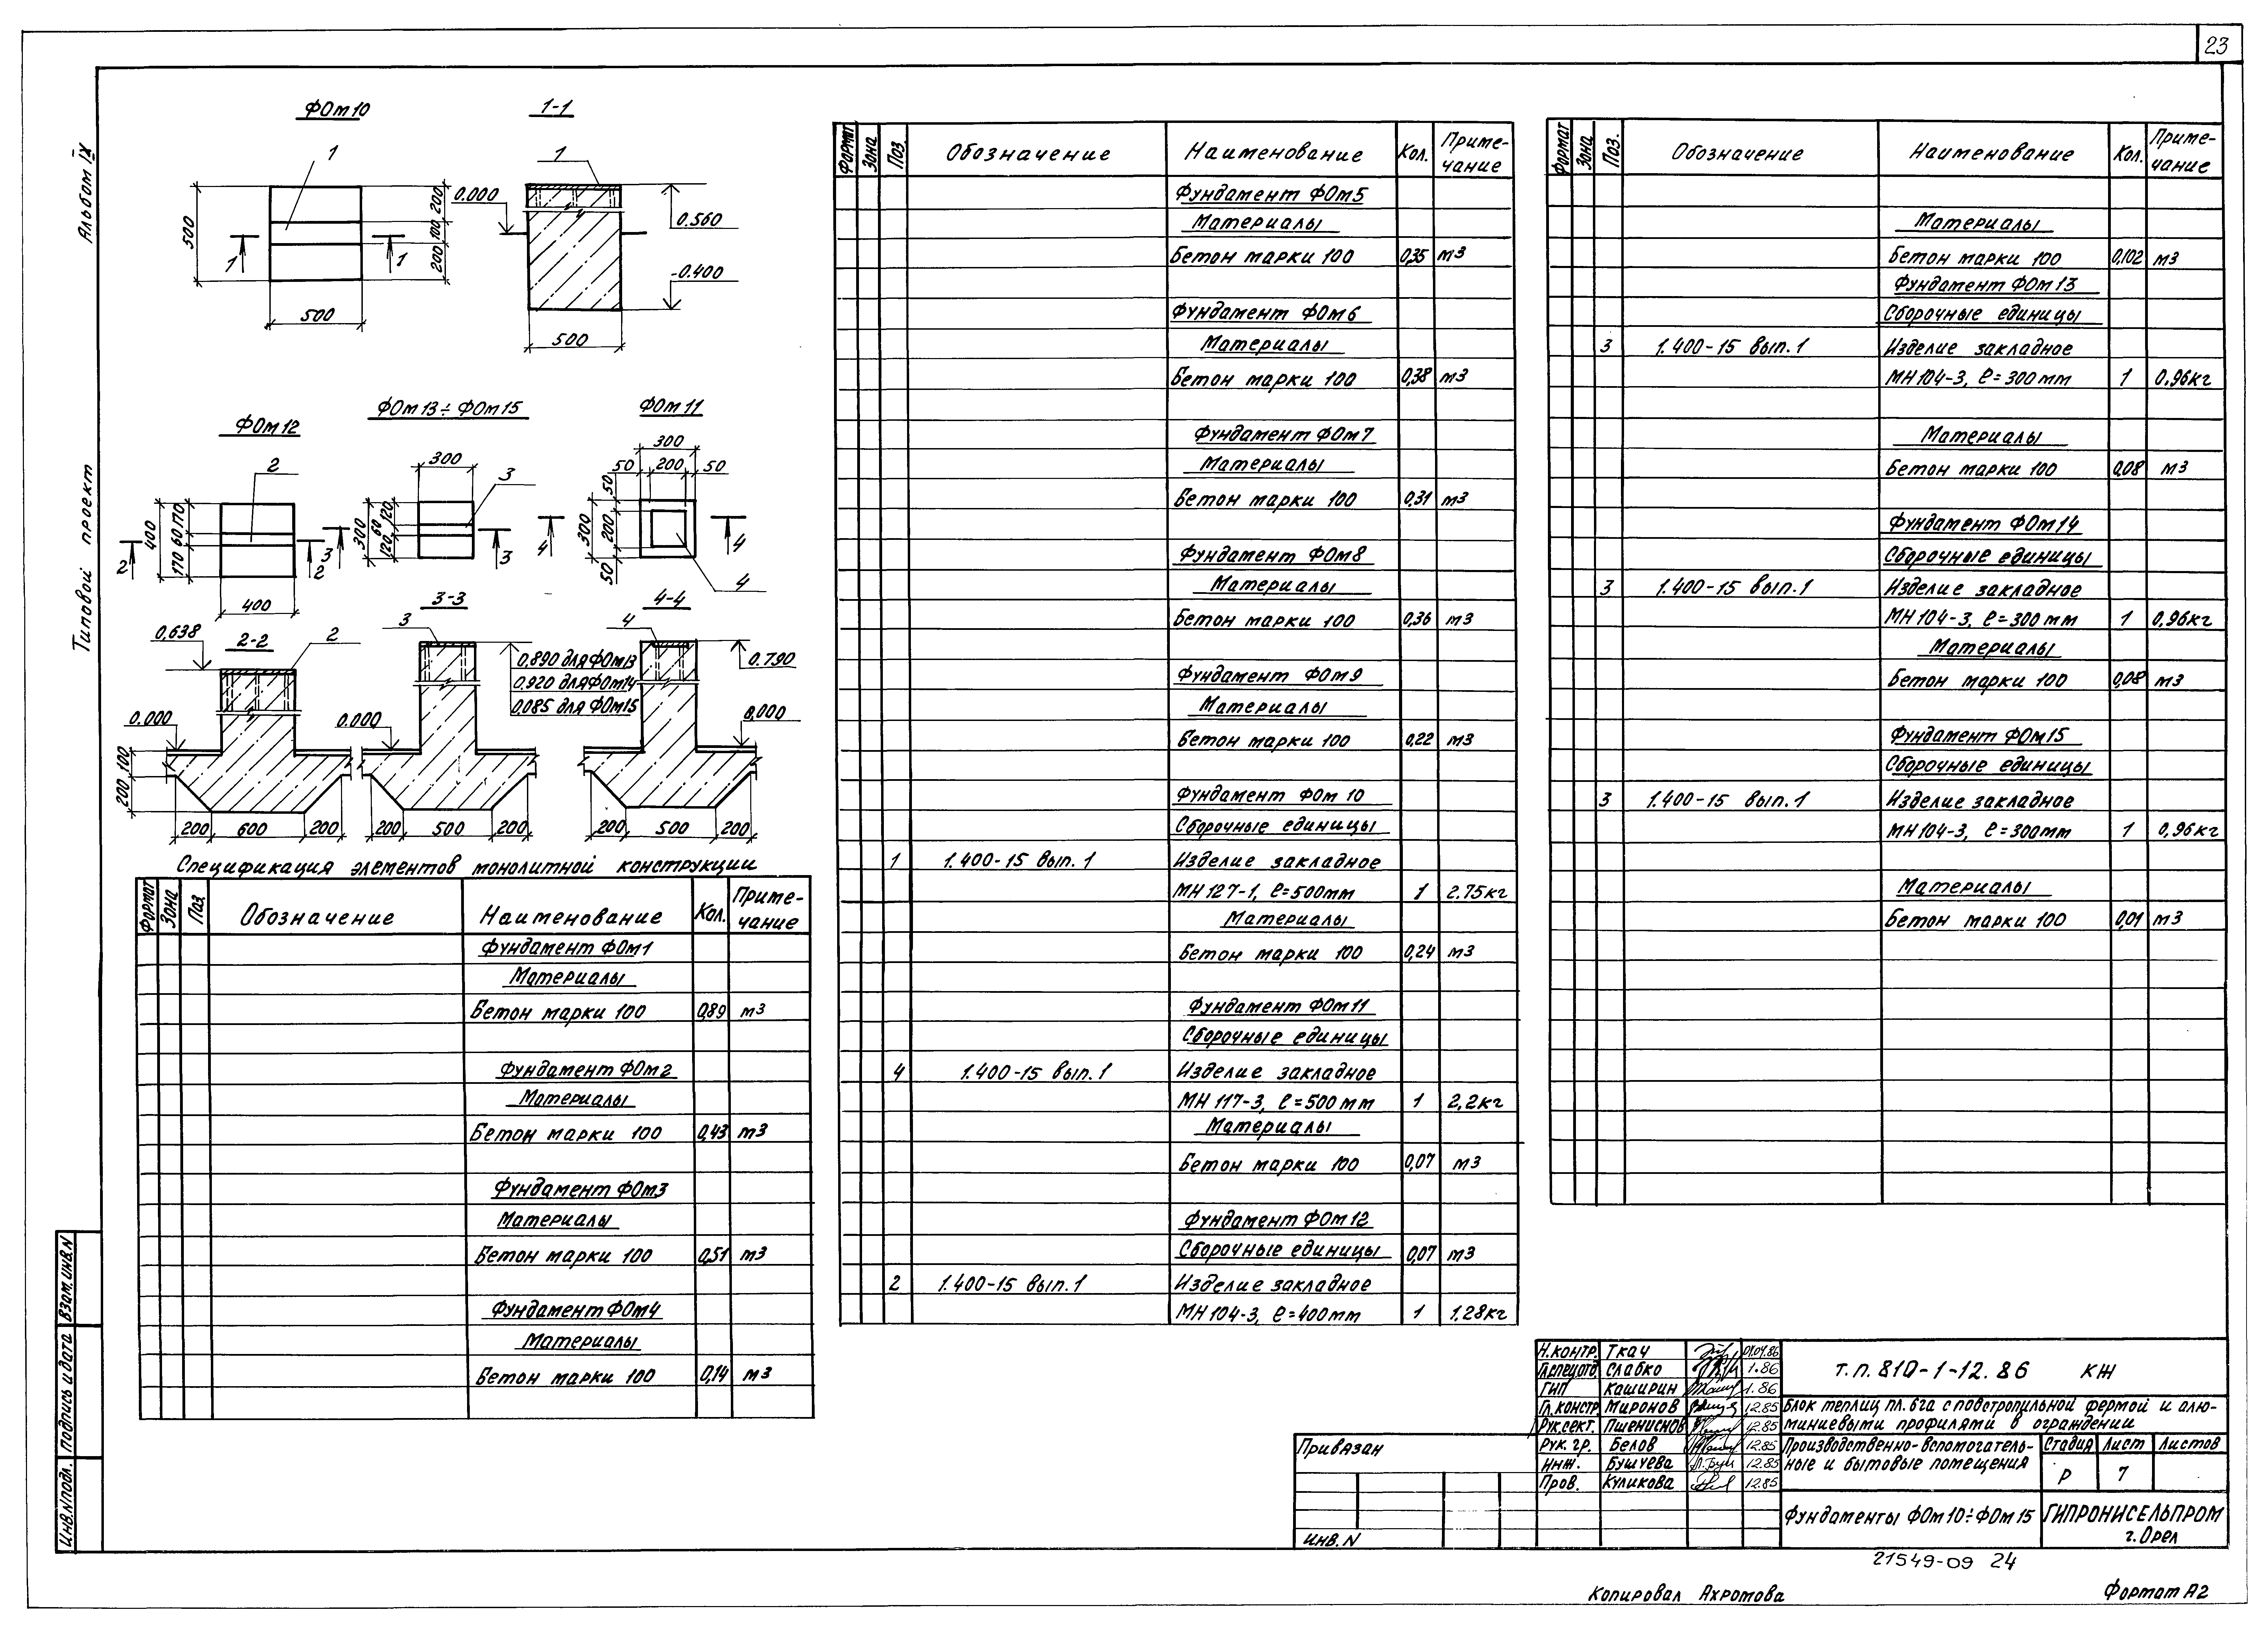 23
Альбом IX
Типовой проект
ФОм10
1-1
1
1
500
200
100
200
1
1
500
0.000
0.560
-0.400
500
ФОм12
ФОм13÷ФОм15
ФОм11
2
400
170
60
170
2
2
400
300
3
300
120
60
120
3
3
300
50
200
50
50
300
200
50
4
4
4
2-2
3-3
4-4
0,638
2
0.000
100
200
200
600
200
3
0,890 для ФОм13
0.920 для ФОм14
0,085 для ФОм15
0.000
200
500
200
4
0.790
0,000
200
500
200
Спецификация элементов монолитной конструкции
Формат Зона Поз Обозначение Наименование Кол. Приме-
чание
Фундамент ФОм1
Материалы
Бетон марки 100 0,89 м3
Фундамент ФОм2
Материалы
Бетон марки 100 0,43 м3
Фундамент ФОм3
Материалы
Бетон марки 100 0,51 м3
Фундамент ФОм4
Материалы
Бетон марки 100 0,14 м3
Формат Зона Поз Обозначение Наименование Кол. Приме-
чание
Фундамент ФОм5
Материалы
Бетон марки 100 0,35 м3
Фундамент ФОм6
Материалы
Бетон марки 100 0,38 м3
Фундамент ФОм7
Материалы
Бетон марки 100 0,31 м3
Фундамент ФОм8
Материалы
Бетон марки 100 0,36 м3
Фундамент ФОм9
Материалы
Бетон марки 100 0,22 м3
Фундамент ФОм 10
Сборочные единицы
1 1.400-15 вып. 1 Изделие закладное
МН 127-1, ℓ=500мм 1 2.75кг
Материалы
Бетон марки 100 0,24 м3
Фундамент ФОм11
Сборочные единицы
4 1.400-15 вып. 1 Изделие закладное
МН 117-3, ℓ=500 мм 1 2,2кг
Материалы
Бетон марки 100 0,07 м3
Фундамент ФОм12
Сборочные единицы 0,07 м3
2 1.400-15 вып. 1 Изделие закладное
МН 104-3, ℓ=400мм 1 1.28кг
Формат Зона Поз. Обозначение Наименование Кол. Приме-
чание
Материалы
Бетон марки 100 0,102 м3
Фундамент ФОм13
Сборочные единицы
3 1.400-15 вып. 1 Изделие закладное
МН104-3, ℓ=300мм 1 0.96кг
Материалы
Бетон марки 100 0,08 м3
Фундамент ФОм14
Сборочные единицы
3 1.400-15 вып. 1 Изделие закладное
МН 104-3, ℓ=300мм 1 0,96кг
Материалы
Бетон марки 100 0,08 м3
Фундамент ФОм15
Сборочные единицы
3 1.400-15 вып. 1 Изделие закладное
МН 104-3, ℓ=300мм 1 0,96кг
Материалы
Бетон марки 100 0,01 м3
Взам. инв.N
Подпись и дата
Инв.N подл.
Привязан
Инв. N
Н.контр. Ткач 01.01.86
Гл.спец.отд. Слабко 1.86
ГИП Каширин 1.86
Гл.констр Миронов 12.85
Рук.сект. Пшениснов 12.85
Рук. гр. Белов 12.85
Инж. Бушуева 12.85
Пров. Куликова 12.85
т.п. 810-1-12.86 КЖ
Блок теплиц пл. 6га с подстропильной фермой и алю-
миниевыми профилями в ограждении
Производственно-вспомогатель-
ные и бытовые помещения
Стадия Лист Листов
Р 7
Фундаменты ФОм10÷ФОм15
ГИПРОНИСЕЛЬПРОМ
г.Орел
21549-09 24
Копировал Ахромова
Формат А2